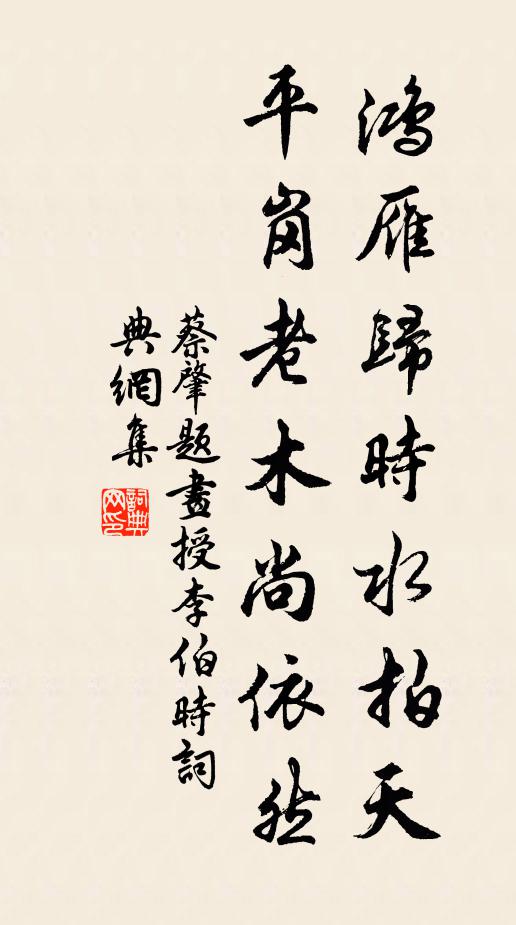 鴻雁歸時水拍天
平崗老木尚依然
蔡肇題畫授李伯時詞
典網集
詞典網印